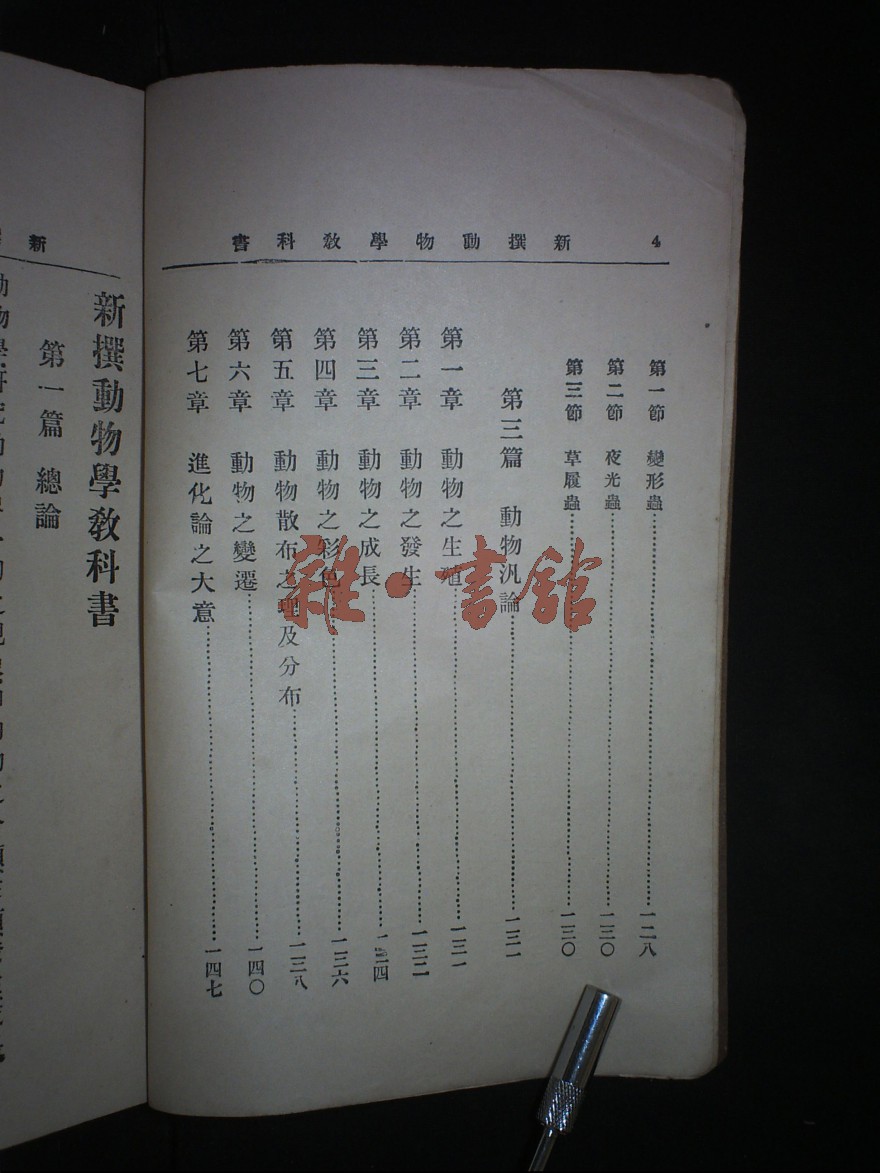 4 新撰動物學教科書
第一節 變形蟲 一二八
第二節 夜光蟲 一三〇
第三節 草履蟲 一三〇
第三篇 動物汎論 一三一
第一章 動物之生殖 一三一
第二章 動物之發生 一三二
第三章 動物之成長 一三四
第四章 動物之彩色 一三六
第五章 動物散布之理及分布 一三八
第六章 動物之變遷 一四〇
第七章 進化論之大意 一四七
雜·書館
新
新撰動物學教科書
第一篇 總論